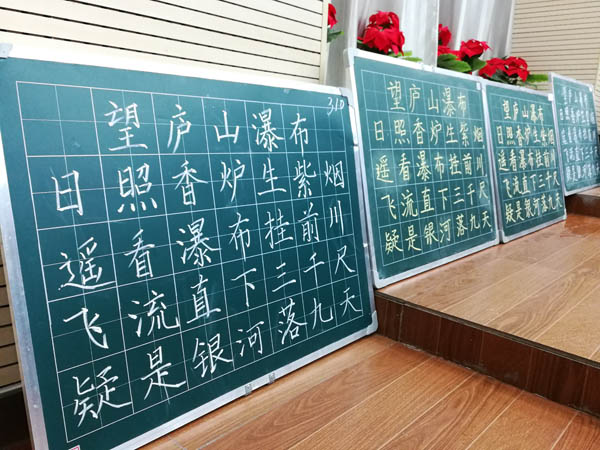 310
望庐山瀑布
日照香炉生紫烟
遥看瀑布挂前川
飞流直下三千尺
疑是银河落九天
望庐山瀑布
日照香炉生紫烟
遥看瀑布挂前川
飞流直下三千尺
疑是银河落九天
望庐山瀑布
日照香炉生紫烟
遥看瀑布挂前川
飞流直下三千尺
疑是银河落九天